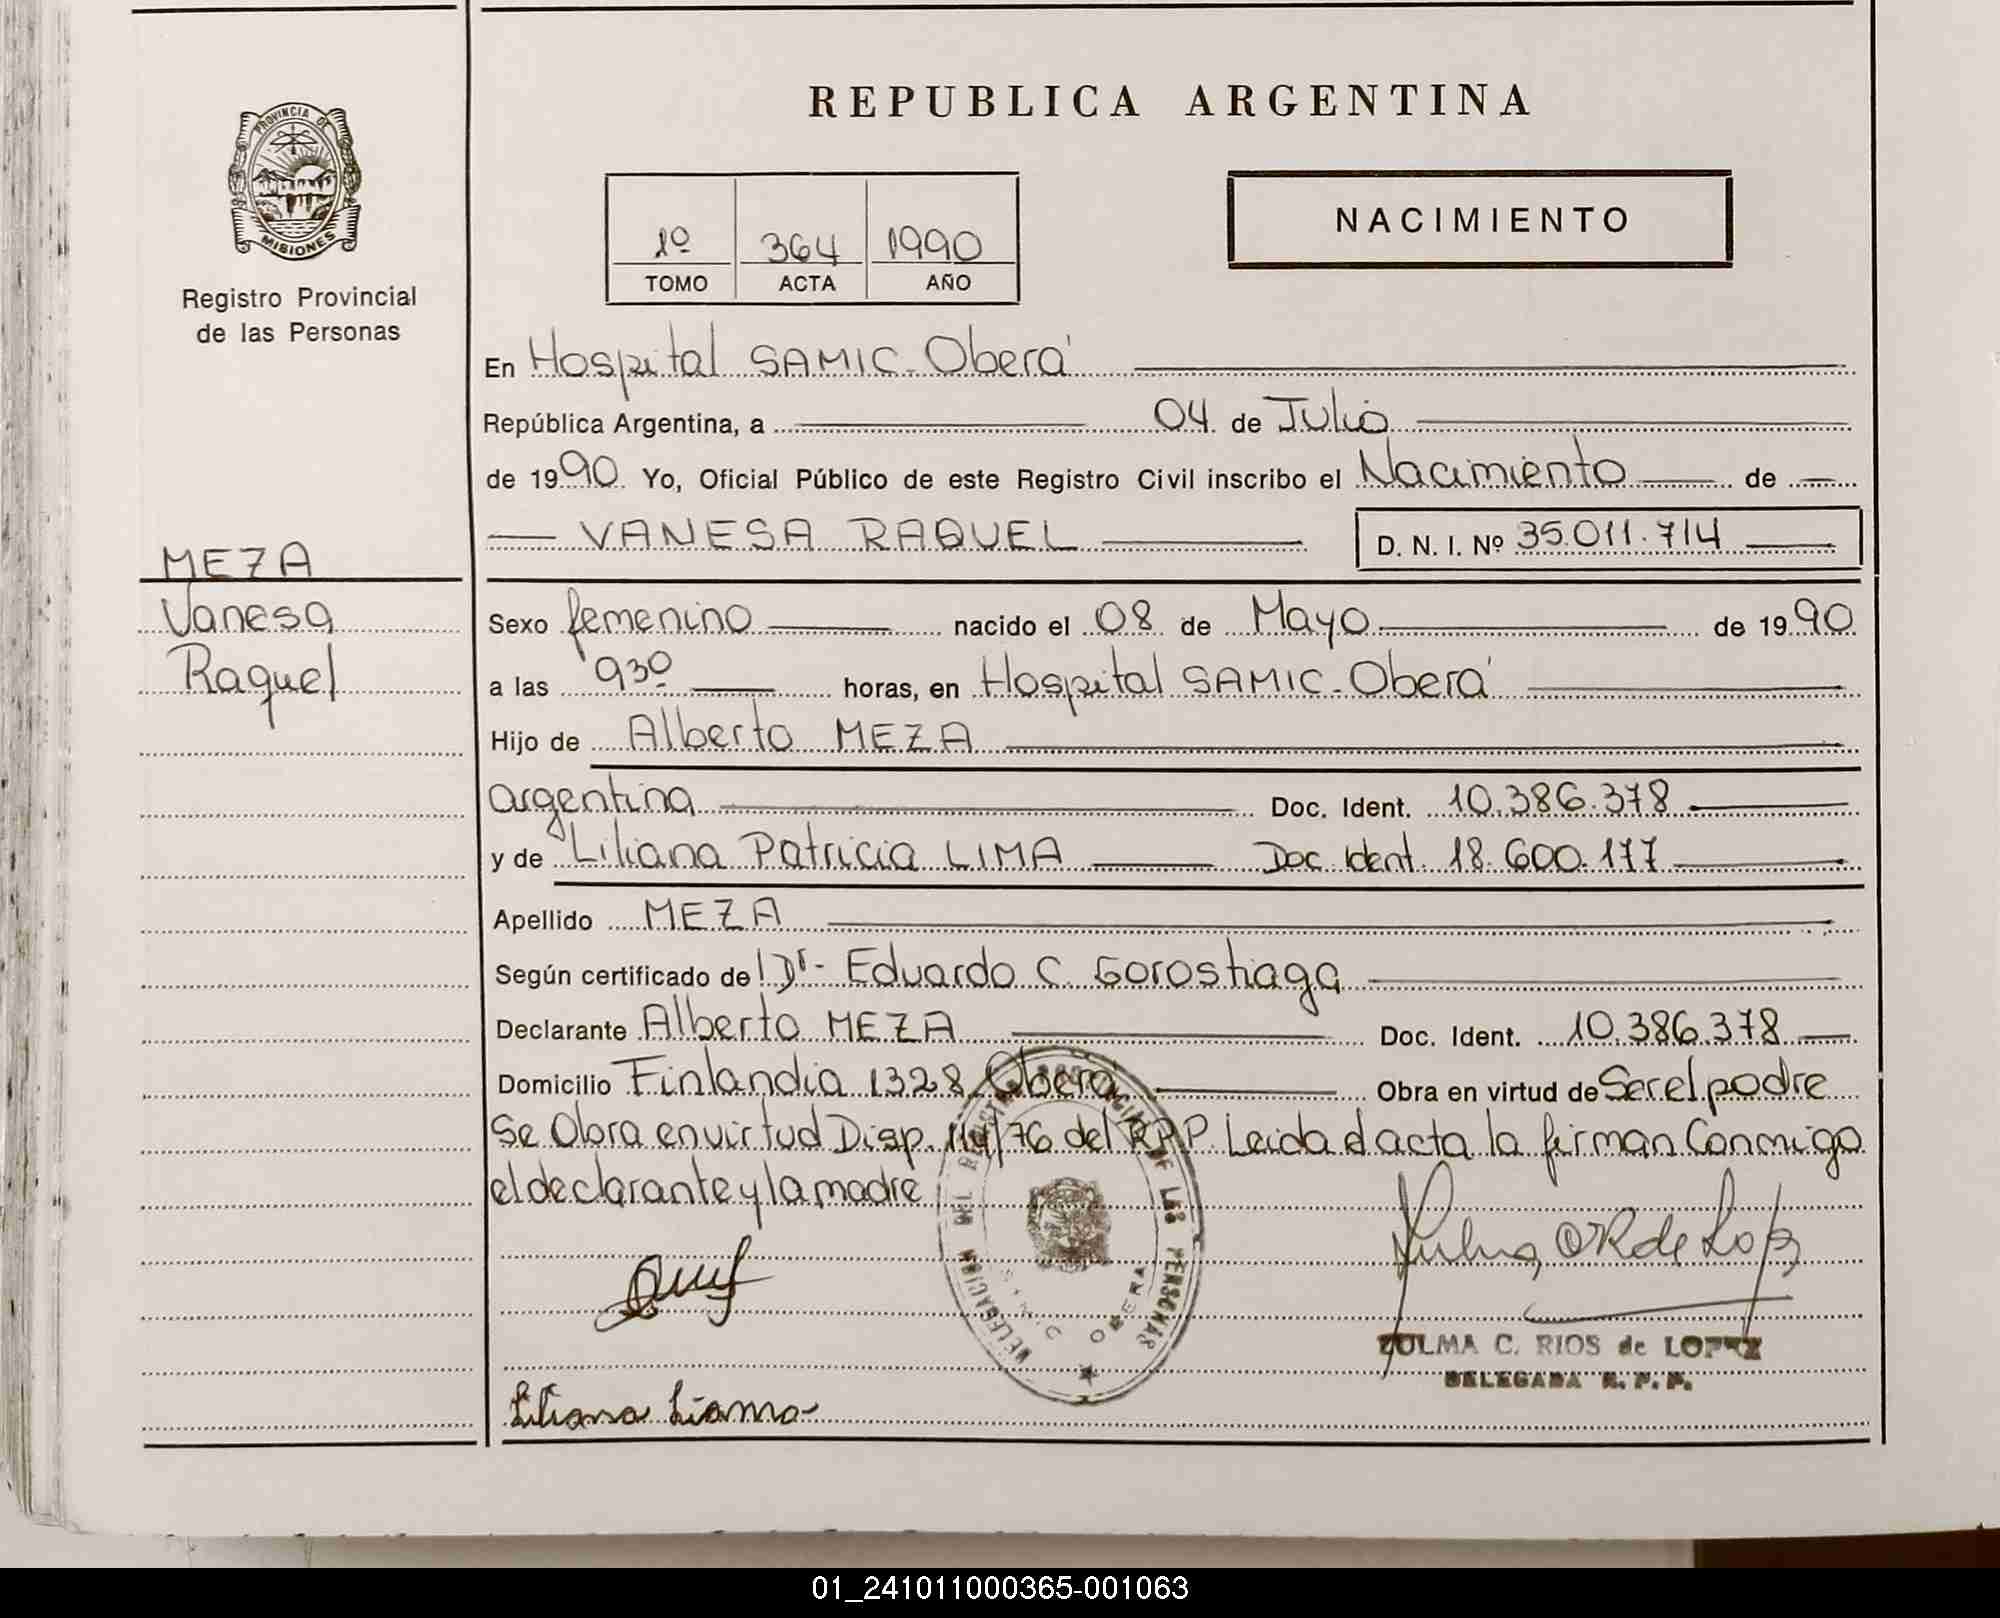 REPUBLICA ARGENTINA
PROVINCIA DE
MISIONES
Registro Provincial
de las Personas
1º 364 1990
TOMO ACTA AÑO
NACIMIENTO
En Hospital SAMIC-Oberá
República Argentina, a 04 de Julio
de 1990 Yo, Oficial Público de este Registro Civil inscribo el Nacimiento de
VANESA RAQUEL D. N. I. Nº 35.011.714
MEZA
Vanesa
Raquel
Sexo femenino nacido el 08 de Mayo de 1990
a las 930 horas, en Hospital SAMIC-Oberá
Hijo de Alberto MEZA
argentina Doc. Ident. 10.386.378
y de Liliana Patricia LIMA Doc. Ident. 18.600.177
Apellido MEZA
Según certificado de Dr- Eduardo C. Gorostiaga
Declarante Alberto MEZA Doc. Ident. 10.386.378
Domicilio Finlandia 1328 Oberá Obra en virtud de Ser el padre
Se Obra en virtud Disp. 114/76 del RPP. Leida el acta la firman Conmigo
el declarante y la madre
DELEGACION DEL REGISTRO PROVINCIAL DE LAS PERSONAS
OBERA
ZULMA C. RIOS de LOPEZ
DELEGADA R. P. P.
Liliana
01_241011000365-001063